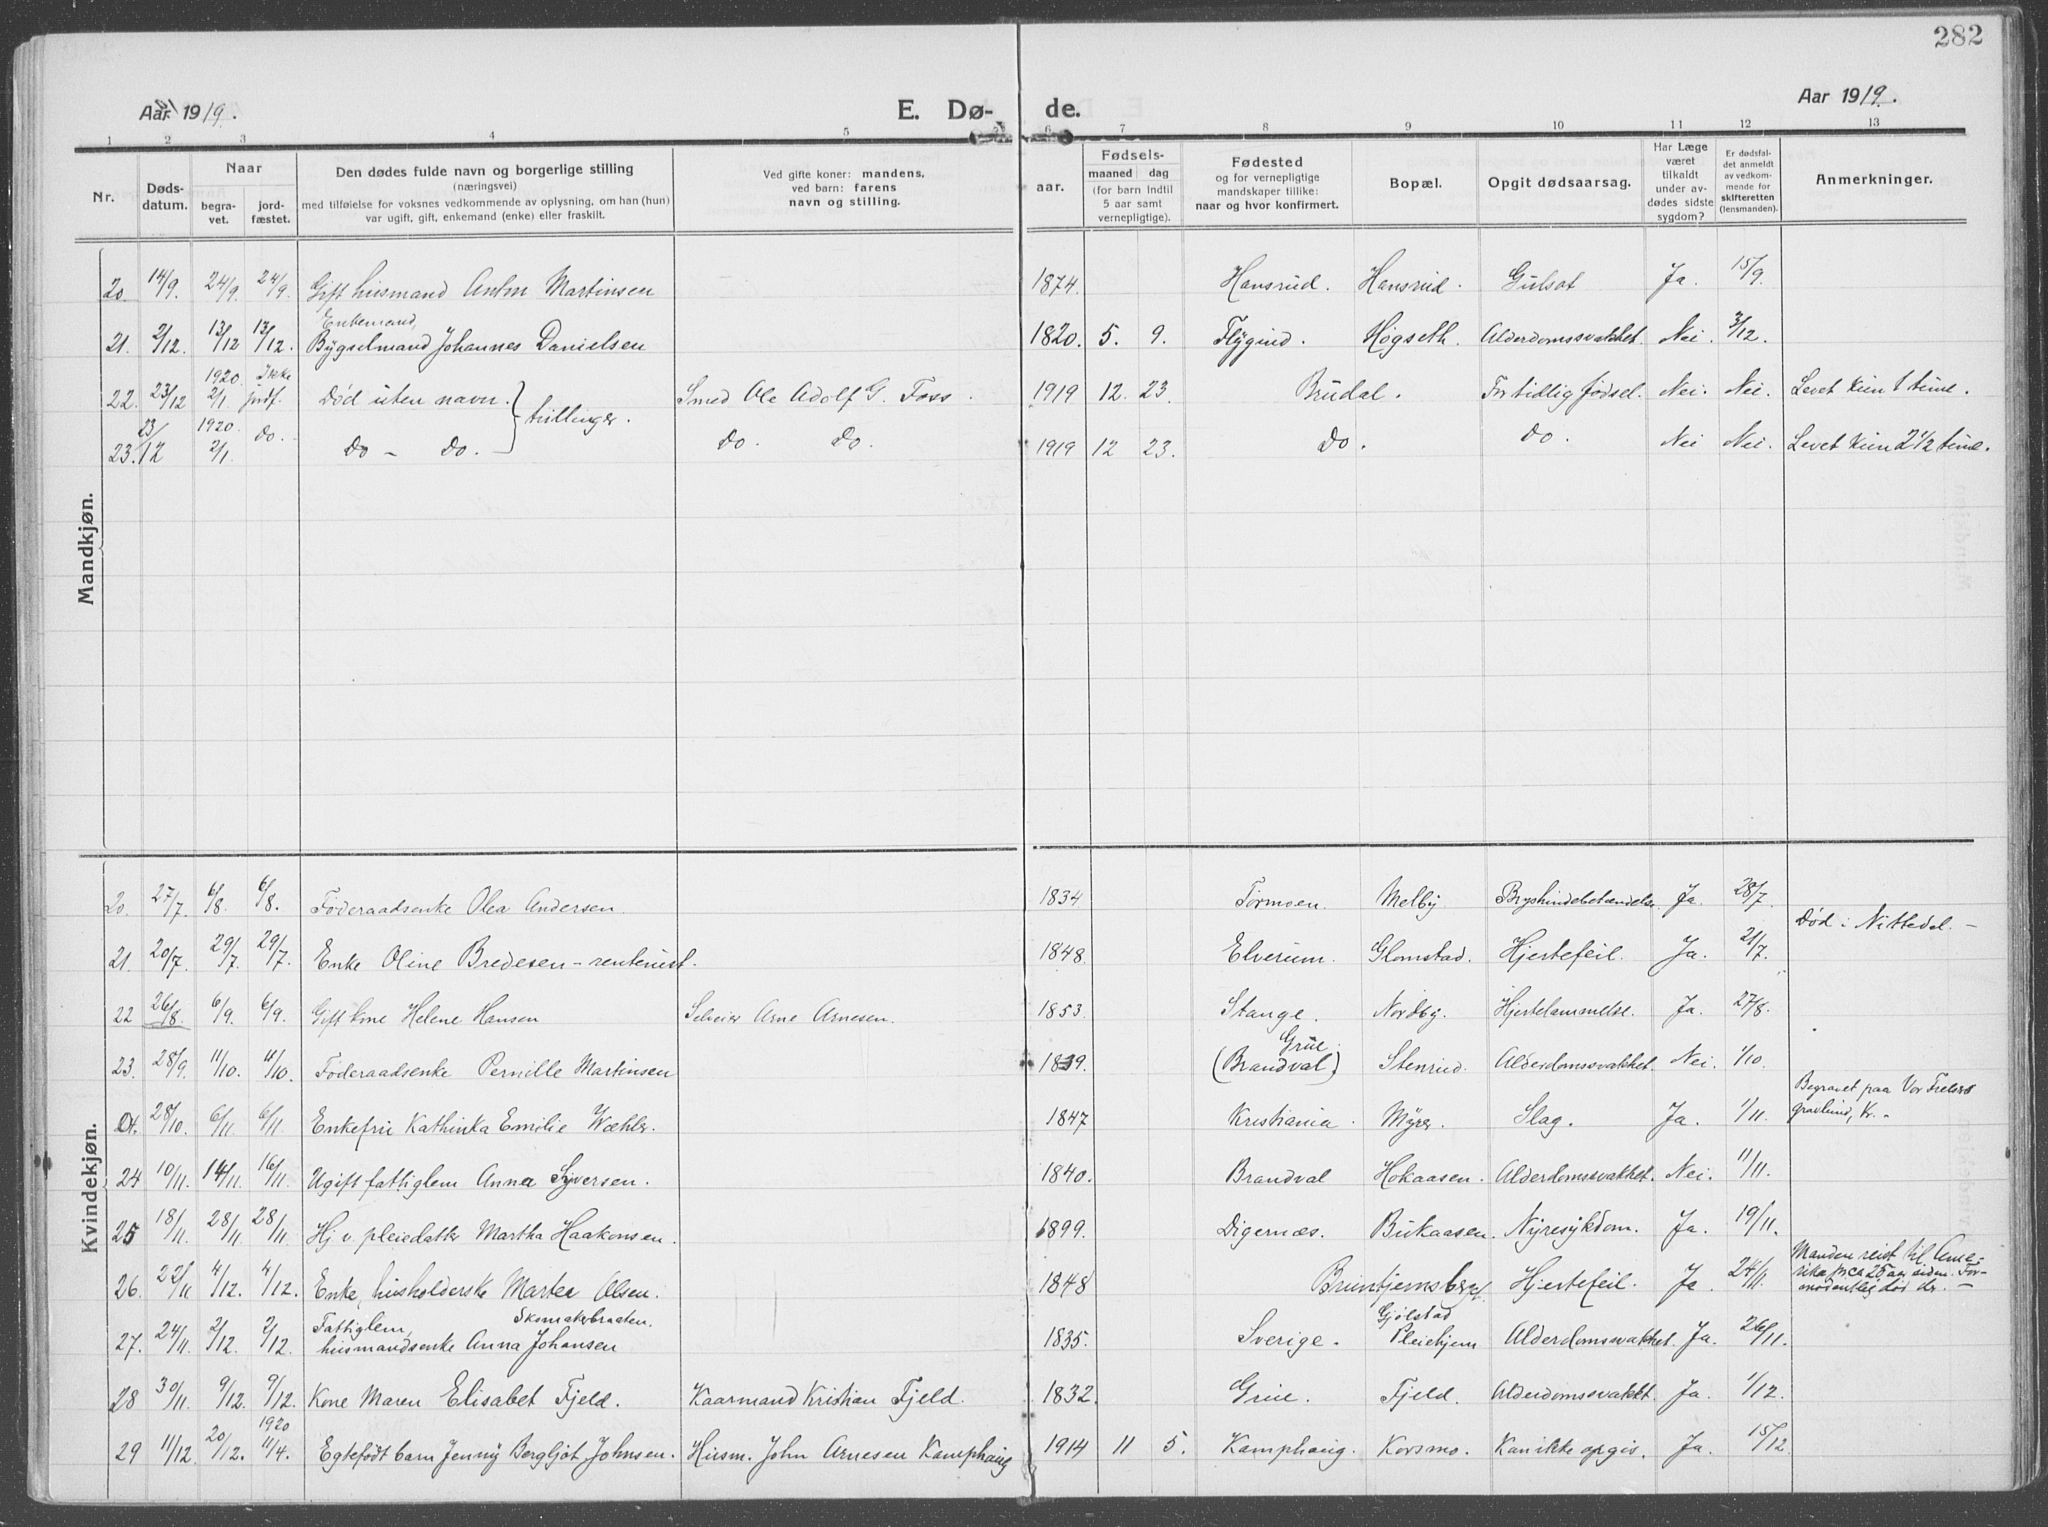 282
Aar 1919.
E. Dø-
de.
Aar 1919.
1 2 3 4 5 6 7 8 9 10 11 12 13
Nr.
Døds-
datum.
Naar
begra-
vet.
jord-
fæstet.
Den dødes fulde navn og borgerlige stilling
(næringsvei)
med tilføielse for voksnes vedkommende av oplysning, om han (hun)
var ugift, gift, enkemand (enke) eller fraskilt.
Ved gifte koner: mandens,
ved barn: farens
navn og stilling.
Fødsels-
aar.
maaned dag
(for barn indtil
5 aar samt
vernepligtige).
Fødested
og for vernepligtige
mandskaper tillike:
naar og hvor konfirmert.
Bopæl.
Opgit dødsaarsag.
Har Læge
været
tilkaldt
under av-
dødes sidste
sygdom?
Er dødsfal-
det anmeldt
av vedkom-
mende for
skifteretten
(lensmanden).
Anmerkninger.
Mandkjøn.
20. 14/9. 24/9. 24/9. Gift husmand Anton Martinsen 1874. Hansrud. Hansrud. Gulsot Ja. 15/9.
Enkemand,
21. 2/12. 13/12 13/12. Bygselmand Johannes Danielsen 1820. 5. 9. Flygind. Høgseth. Alderdomssvakhet. Nei. 3/12.
22. 23/12 1920. 2/1. Ikke jordf. Død uten navn. } trillinger. Smed Ole Adolf G. Foss. 1919 12. 23. Brudal. For tidlig fødsel. Nei. Nei. Levet kun 1 time.
23. 23/12 1920. 2/1. Do. Do - Do. Do. Do. 1919 12 23. Do. Do. Nei Nei. Levet kun 2 1/2 time.
Kvindekjøn.
20. 27/7. 6/8. 6/8. Føderaadsenke Olea Andersen. 1834 Tormoen Melby. Brysthindebetændelse. Ja. 28/7.
21. 20/7. 29/7. 29/7. Enke Oline Bredesen - renterist. 1848. Elverum. Glomstad. Hjertefeil. Ja. 21/7. Død i Nittedal. -
22 26/8. 6/9. 6/9. Gift kone Helene Hansen Selveier Arne Arnesen. 1853. Stange. Nordby. Hjertelammelse. Ja. 27/8.
23. 28/9. 11/10. 11/10. Føderaadsenke Pernille Martinsen 1839. Grue. (Brandval) Stenrud. Alderdomssvakhet. Nei. 1/10.
28/10. 6/11. 6/11. Enkefru Kathinka Emilie Wæhler. 1847 Kristiania. Myrer. Slag. Ja. 1/11. Begravet paa Vor Frelsers
gravlund, Kr. -
24 10/11. 14/11. 16/11. Ugift fattiglem Anna Syversen. 1840. Brandval Hokaasen. Alderdomssvakhet. Nei. 11/11.
25 18/11. 28/11 28/11. Hj. v. pleiedatter Martha Haakonsen. 1899. Digernæs. Bukaasen. Nyresykdom. Ja. 19/11.
26. 22/11 4/12. 4/12. Enke, husholderske Martea Olsen. 1848 Bruntjernsberg. Hjertefeil. Ja 24/11. Manden reist til Ame-
rika for ca 25 aar siden. For-
modentlig død der. -
27. 24/11. 2/12. 2/12. Fattiglem, Skomakerbraaten.
husmandsenke Anna Johansen 1835. Sverige. Gjølstad
Pleiehjem Alderdomssvakhet. Ja. 26/11.
28 30/11. 9/12. 9/12. Kone Maren Elisabet Fjeld. Kaarmand Kristian Fjeld. 1832. Grue. Fjeld. Alderdomssvakht. Ja. 1/12.
29 11/12. 20/12. 1920 11/4. Egtefødt barn Jenny Bergljot Johnsen. Husm. John Arnesen Kamphaug 1914 11 5. Kamphaug. Korsmo. Kan ikke opgis. Ja. 15/12.